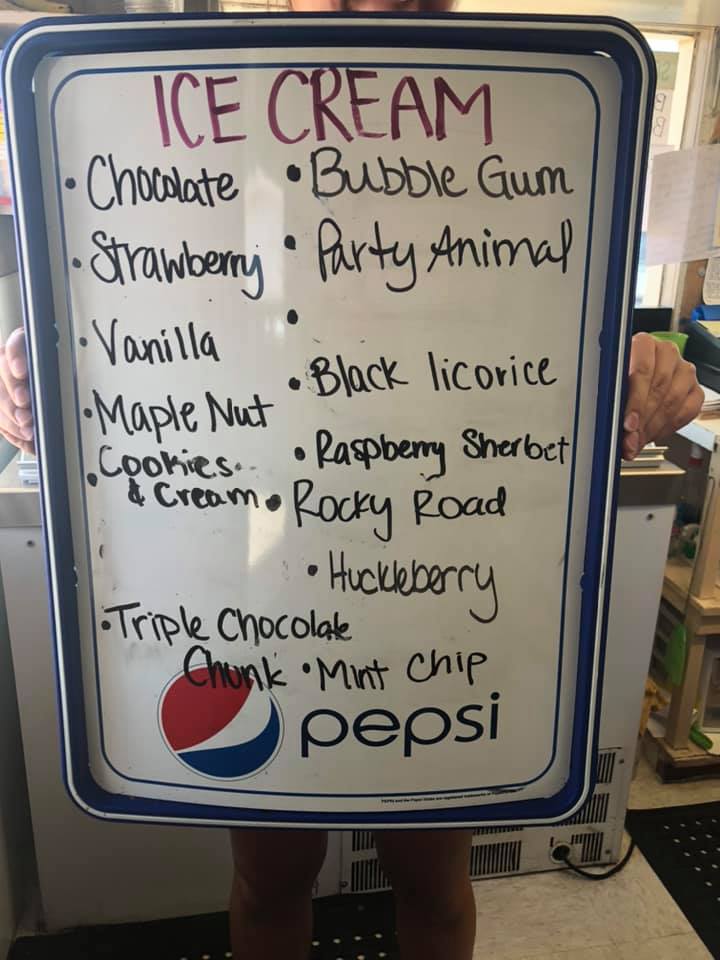 ICE CREAM
• Chocolate
• Strawberry
• Vanilla
• Maple Nut
• Cookies
& Cream
• Triple Chocolate
Chunk
• Bubble Gum
• Party Animal
•
• Black licorice
• Raspberry Sherbet
• Rocky Road
• Huckleberry
• Mint Chip
pepsi